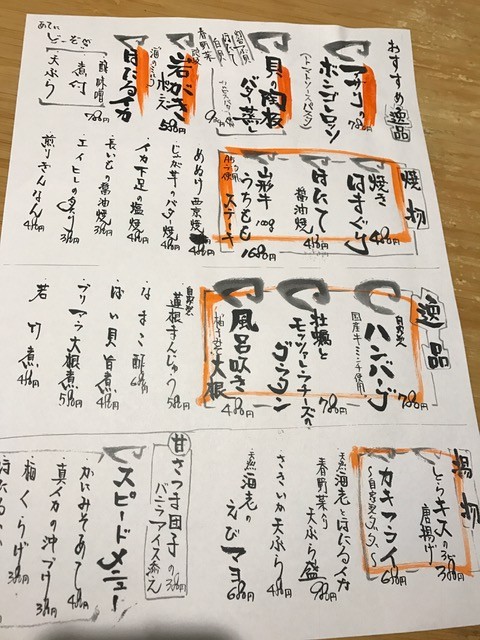 おすすめ逸品
アサリの
ボンゴレロッソ
(トマトソースパスタ)
780円
貝の陶板
バター蒸し
岩がき
580円
ほたるイカ
酢味噌
煮付
天ぷら
780円
焼物
焼き
はまぐり
480円
ほたて
醤油焼
480円
山形牛
うちもも
ステーキ
100g
1680円
A5ランク使用
めぬけ西京焼
480円
じゃが芋のバター焼
イカ下足の塩焼
長いもの醤油焼
380円
エイヒレの炙り
煎りぎんなん
480円
逸品
自家製
ハンバーグ
国産牛ミンチ使用
780円
牡蠣と
モッツァレラチーズの
グラタン
780円
風呂吹き
大根
柚子
480円
自家製
蓮根まんじゅう
580円
なまこ酢
680円
ばい貝旨煮
480円
ブリアラ大根煮
580円
若竹煮
480円
揚物
とらキスの
唐揚げ
380円
カキフライ
〜自家製タルタル〜
680円
天然海老とほたるイカ
春野菜の天ぷら盛
980円
さきいか天ぷら
480円
天然海老の
えびマヨ
680円
甘
さつま団子の
バニラアイス添え
380円
スピードメニュー
かにみそあて
480円
真イカの沖づけ
380円
梅くらげ
380円